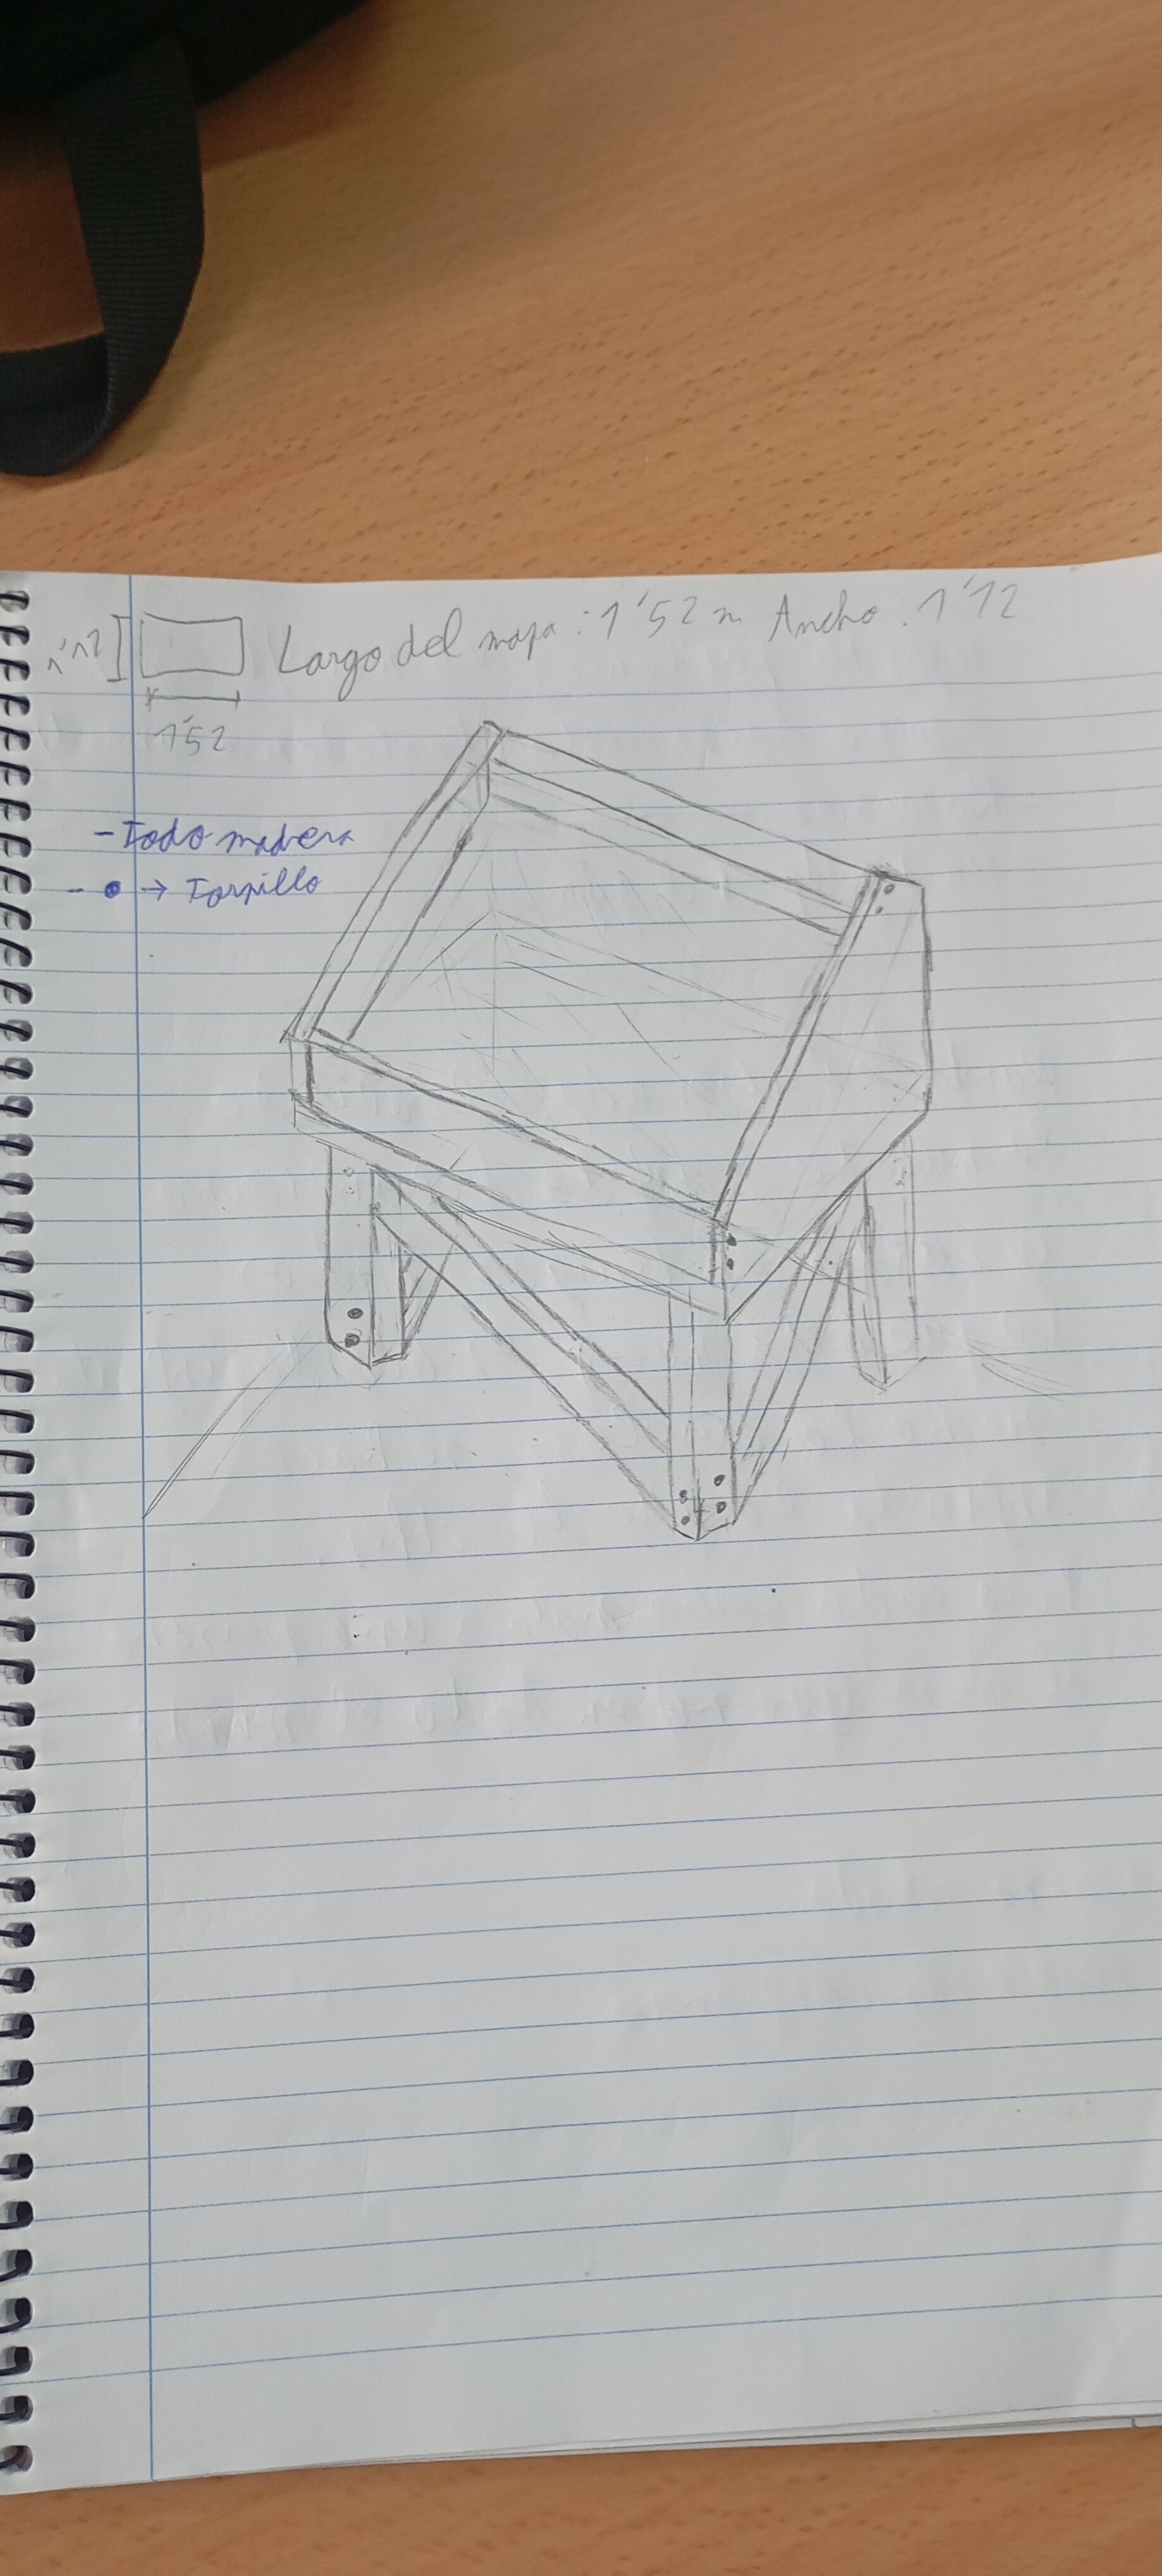 1'12
Largo del mapa: 1'52 m Ancho: 1'12
1'52
- Todo madera
- • → Tornillo